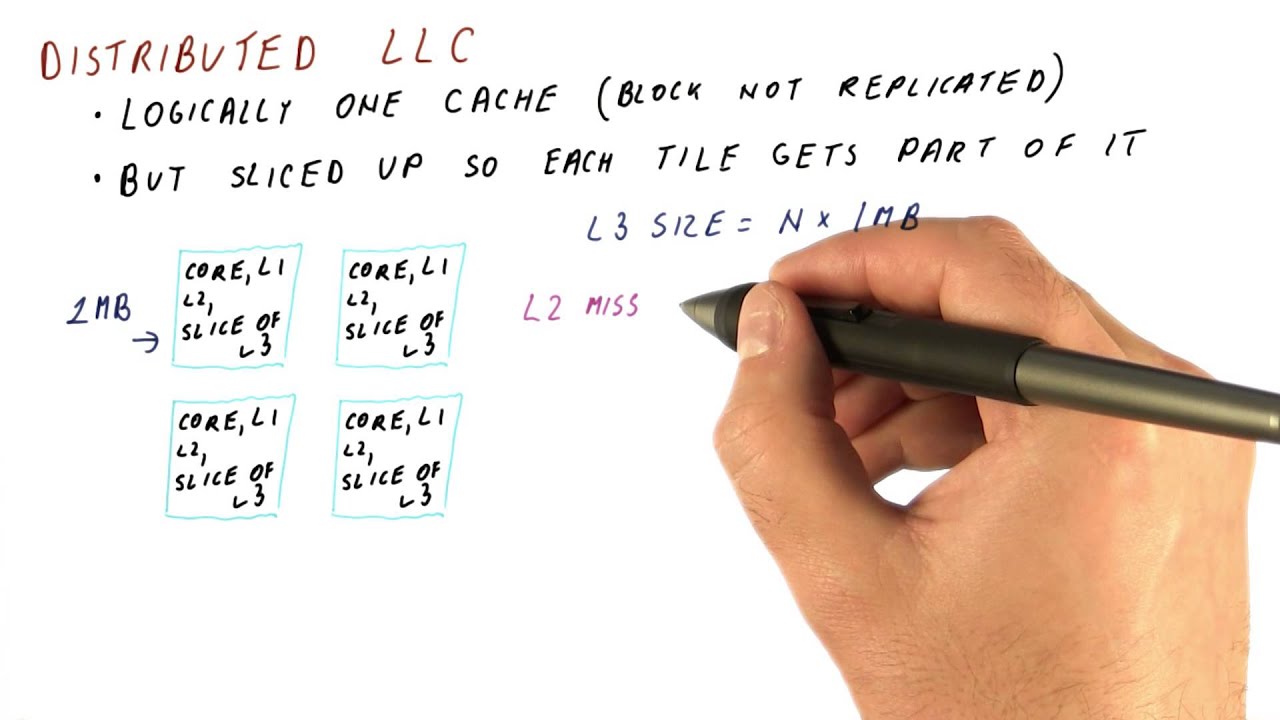 DISTRIBUTED LLC
• LOGICALLY ONE CACHE (BLOCK NOT REPLICATED)
• BUT SLICED UP SO EACH TILE GETS PART OF IT
L3 SIZE = N × 1MB
1MB →
CORE, L1
L2,
SLICE OF
L3
CORE, L1
L2,
SLICE OF
L3
L2 MISS
CORE, L1
L2,
SLICE OF
L3
CORE, L1
L2,
SLICE OF
L3